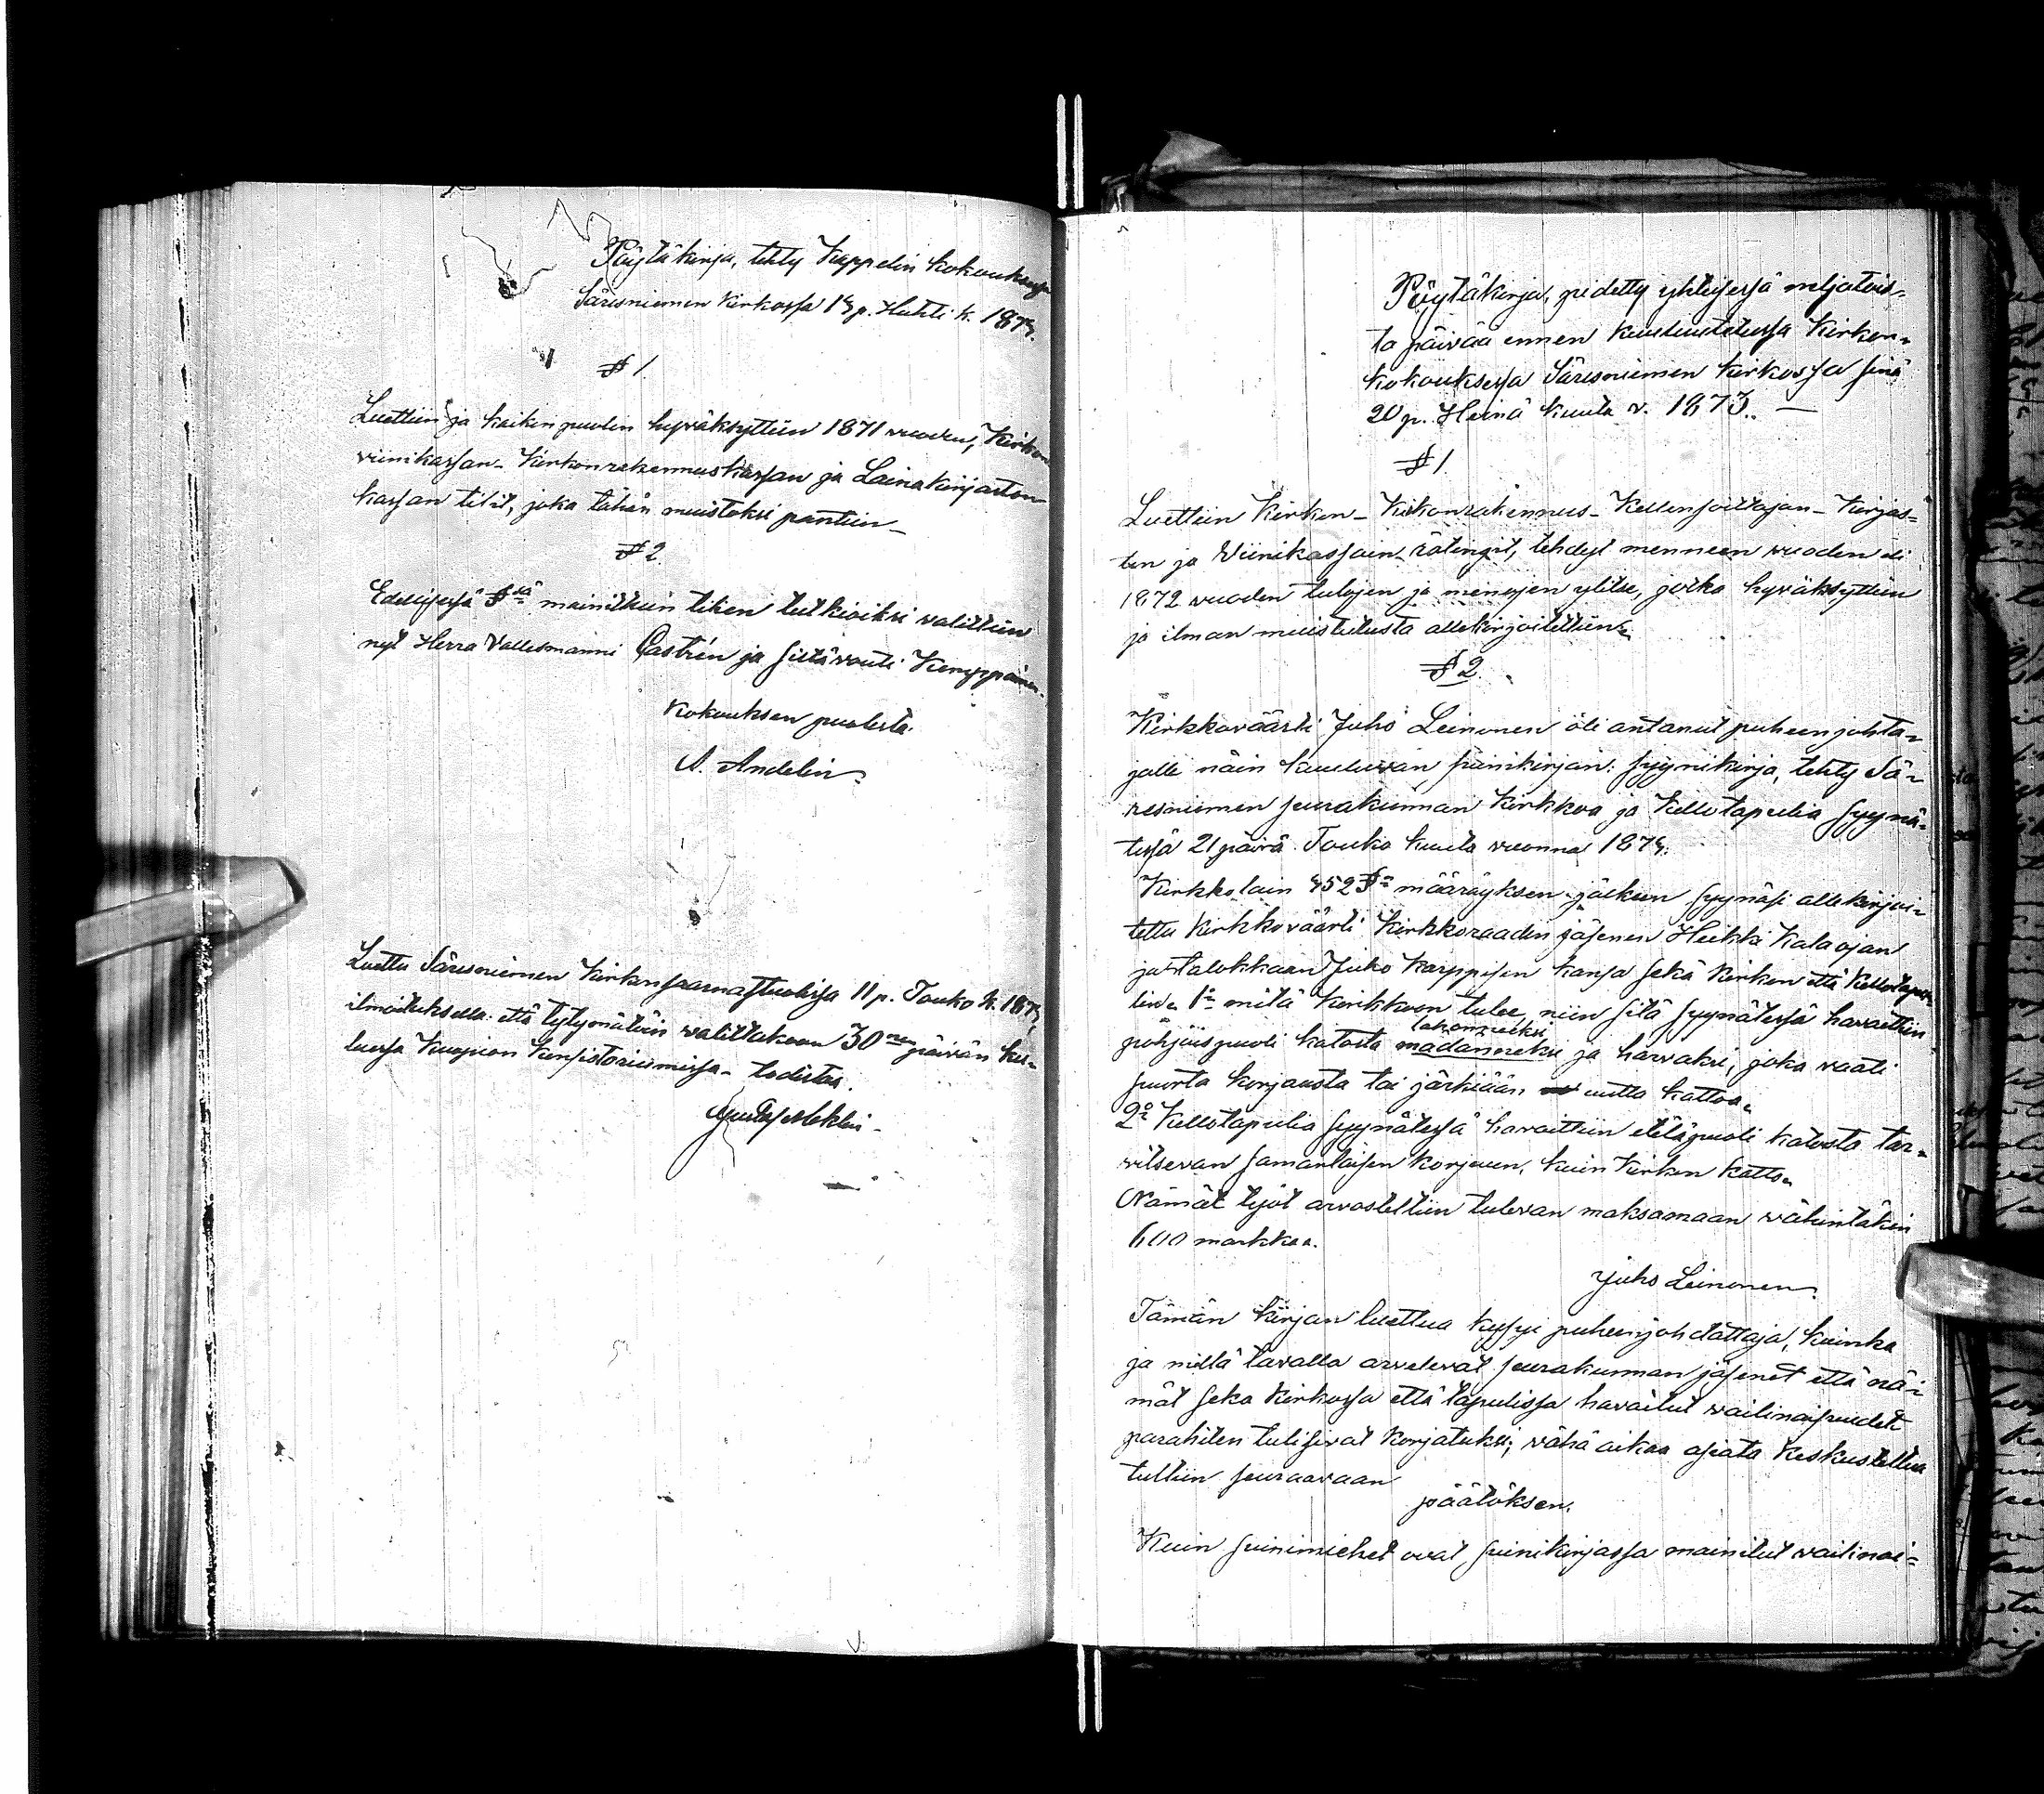 Pöytäkirja, tehty Kappelin kokouksessa
Säresniemen Kirkossa 14 p. Huhti k. 1873.
§ 1.
Luettiin ja kaikin puolin hyväksyttiin 1871 vuoden, Kirkon
viinikassan- Kirkonrakennuskassan ja Lainakirjaston
kassan tilit, joka tähän muistoksi pantiin_
§ 2.
Edellisessä §ssä mainittuin tilien tutkioiksi valittiin
nyt Herra Vallesmanni Castrén ja siltävouti Kemppainen.
Kokouksen puolesta.
A. Andelin
Luettu Säresniemen Kirkon saarnastuolissa 11 p. Touko k. 1873,
ilmoituksella: että tytymätöin valittakoon 30nen päivän ku-
luessa Kuopion Konsistoriumissa- todistaa.
Pöytäkirja, pidetty yhteisessä neljätois-
ta päivää ennen kuulutetussa Kirkon-
kokouksessa Säresniemen Kirkossa sinä
20 p. Heinä kuuta v. 1873. —
§ 1.
Luettiin Kirkon- Kirkonrakennus- Kellonsoittajan- Kirjas-
ton ja Viinikassain rätingit, tehdyt menneen vuoden eli
1872 vuoden tulojen ja menojen ylitse, jotka hyväksyttiin
ja ilman muistutusta allekirjoitettiin.
§ 2.
Kirkkoväärti Juho Leinonen oli antanut puheenjohta-
jalle näin kuuluvan siinikirjan: syynikirja, tehty Sä-
resniemen seurakunnan Kirkkoa ja Kellotapulia syynä-
tessä 21 päivä Touko kuuta vuonna 1873.
Kirkkolain 452 §n määräyksen jälkeen syynäsi allekirjoi-
tettu Kirkkoväärti Kirkkoraadin jäsenen Heikki Kalaojan
ja talokkaan Juho Karppisen kansa sekä Kirkon että Kellotapu-
lin. 1o mitä Kirkkoon tulee, niin sitä syynätessä havaittiin
lahonneeksi
pohjoispuoli katosta madänneksi ja harvaksi, joka vaatii
suurta korjausta tai järkiään uutta kattoa.
2o Kellotapulia syynätessä havaittiin eteläpuoli katosta tar-
vitsevan samanlaisen korjuun, kuin Kirkon katto.
Nämät työt arvosteltiin tulevan maksamaan vähintäkin
600 markkaa.
Juho Leinonen.
Tämän kirjan luettua kysyi puheenjohdattaja, kuinka
ja millä tavalla arvelevat seurakunnan jäsenet että nä-
mät seka Kirkossa että tapulissa havaitut vailinaisuudet
parahiten tulisivat korjatuksi; vähä aikaa asiata keskusteltua
tultiin seuraavaan
päätöksen.
Kuin siinimiehet ovat siinikirjassa mainitut vailinai-